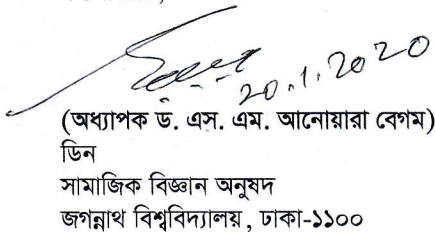 20.1.2020
(অধ্যাপক ড. এস. এম. আনোয়ারা বেগম)
ডিন
সামাজিক বিজ্ঞান অনুষদ
জগন্নাথ বিশ্ববিদ্যালয়, ঢাকা-১১০০